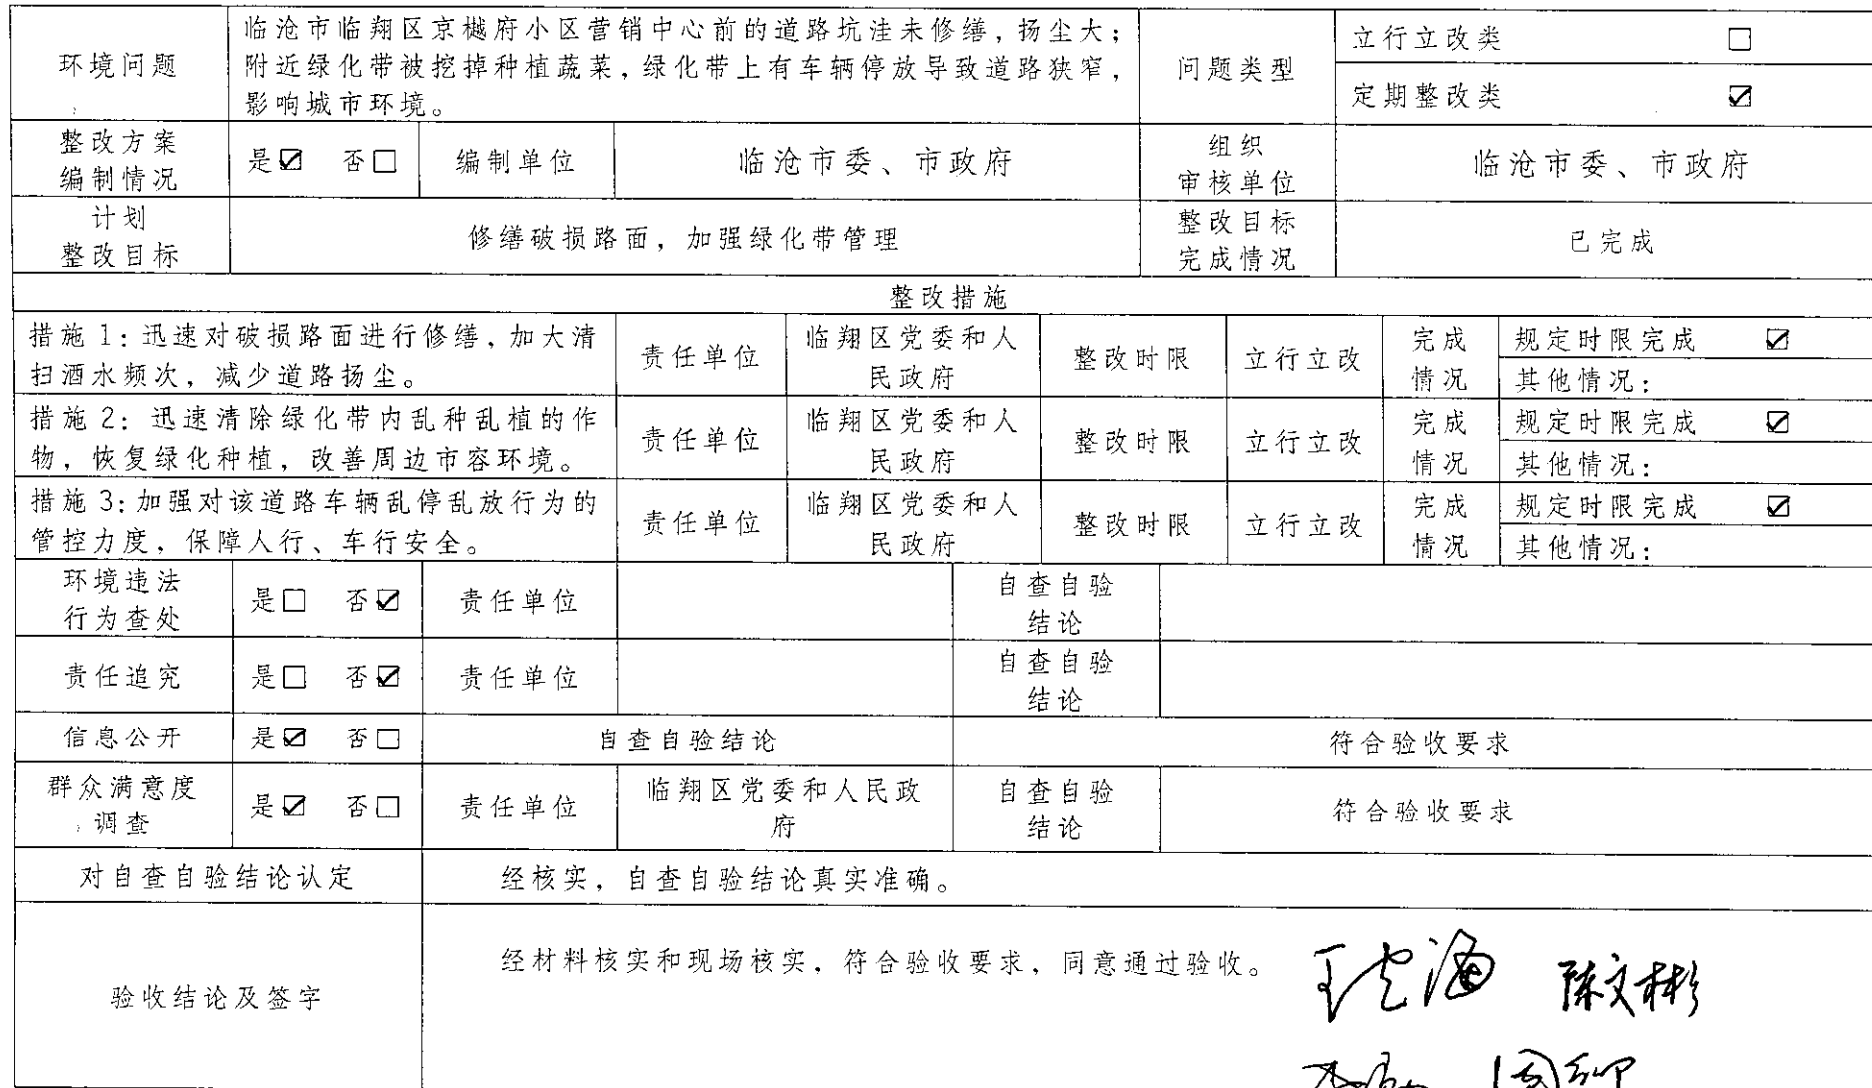 环境问题
临沧市临翔区京樾府小区营销中心前的道路坑洼未修缮，扬尘大；
附近绿化带被挖掉种植蔬菜，绿化带上有车辆停放导致道路狭窄，
影响城市环境。
问题类型
立行立改类 □
定期整改类 ☑
整改方案
编制情况
是☑ 否□
编制单位
临沧市委、市政府
组织
审核单位
临沧市委、市政府
计划
整改目标
修缮破损路面，加强绿化带管理
整改目标
完成情况
已完成
整改措施
措施 1：迅速对破损路面进行修缮，加大清
扫洒水频次，减少道路扬尘。
责任单位
临翔区党委和人
民政府
整改时限
立行立改
完成
情况
规定时限完成 ☑
其他情况：
措施 2：迅速清除绿化带内乱种乱植的作
物，恢复绿化种植，改善周边市容环境。
责任单位
临翔区党委和人
民政府
整改时限
立行立改
完成
情况
规定时限完成 ☑
其他情况：
措施 3：加强对该道路车辆乱停乱放行为的
管控力度，保障人行、车行安全。
责任单位
临翔区党委和人
民政府
整改时限
立行立改
完成
情况
规定时限完成 ☑
其他情况：
环境违法
行为查处
是□ 否☑
责任单位
自查自验
结论
责任追究
是□ 否☑
责任单位
自查自验
结论
信息公开
是☑ 否□
自查自验结论
符合验收要求
群众满意度
调查
是☑ 否□
责任单位
临翔区党委和人民政
府
自查自验
结论
符合验收要求
对自查自验结论认定
经核实，自查自验结论真实准确。
验收结论及签字
经材料核实和现场核实，符合验收要求，同意通过验收。
陈文彬